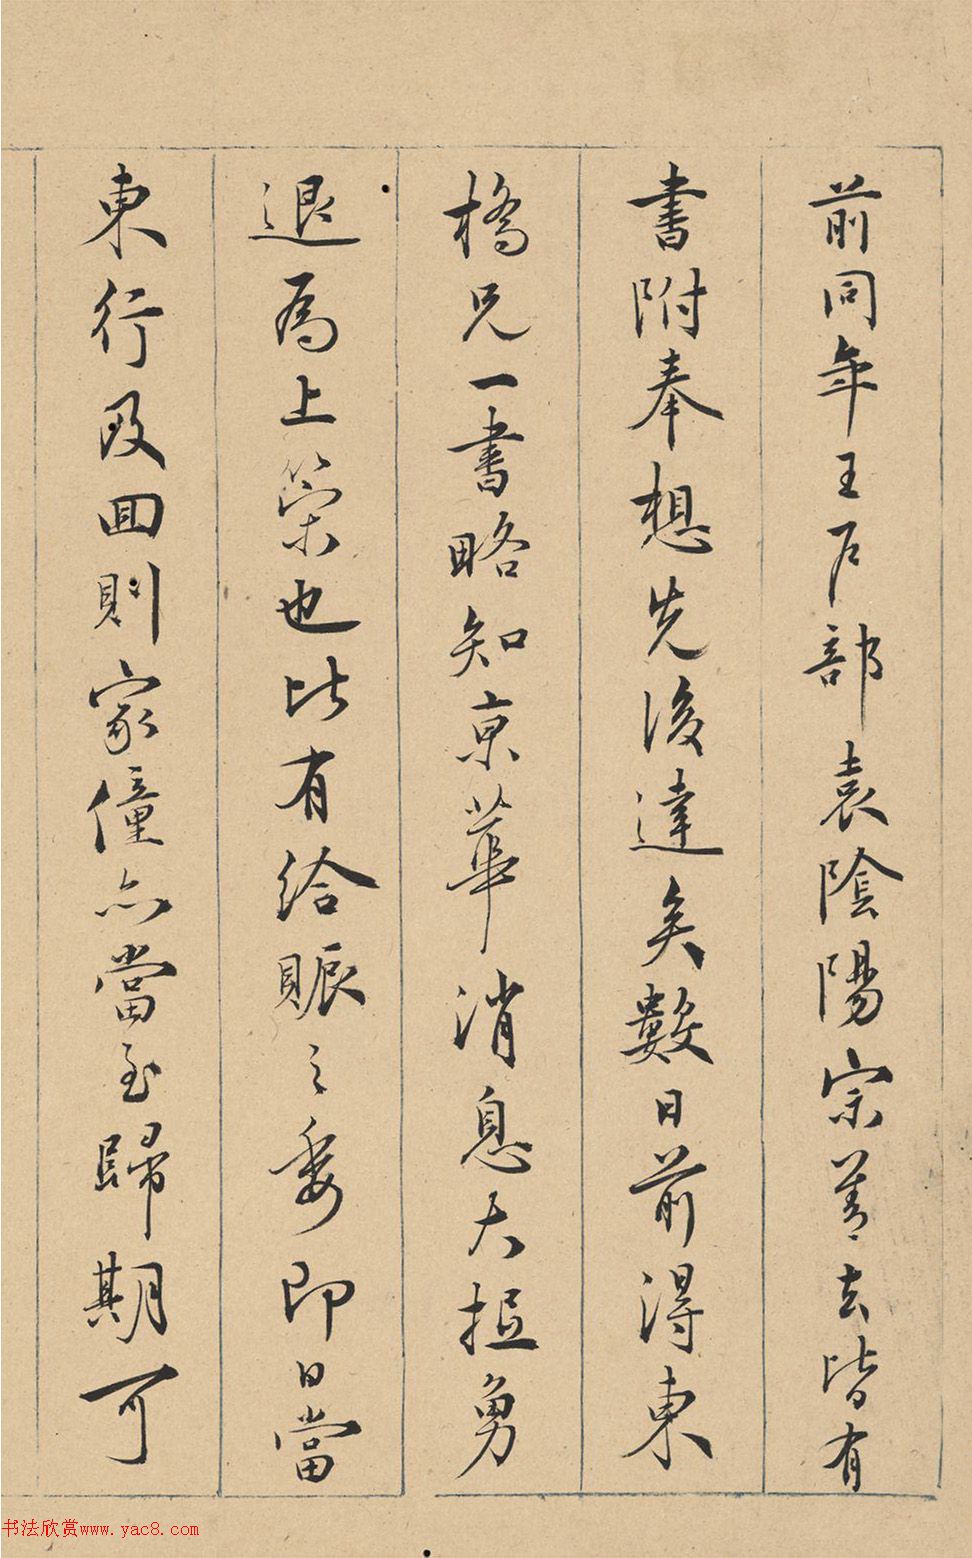 前同年王戶部袁陰陽宗善去皆有
書附奉想先後達矣數日前得東
橋兄一書略知京華消息大抵勇
退爲上策也比有給賑之委即日當
東行及回則家僮亦當至歸期可
书法欣赏www.yac8.com